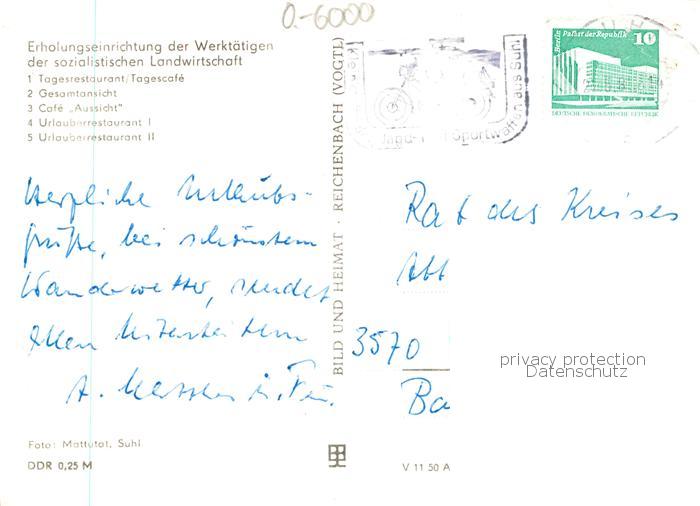 0-6000
Erholungseinrichtung der Werktätigen
der sozialistischen Landwirtschaft
1 Tagesrestaurant/Tagescafé
2 Gesamtansicht
3 Café „Aussicht"
4 Urlauberrestaurant I
5 Urlauberrestaurant II
Herzliche Urlaubs-
grüße, bei schönstem
Wanderwetter, sendet
allen Mitarbeitern
Foto: Mattutat, Suhl
DDR 0,25 M
BILD UND HEIMAT · REICHENBACH (VOGTL)
V 11 50 A
Jagd- Sportwaffen aus Suhl
Berlin Palast der Republik 10
DEUTSCHE DEMOKRATISCHE REPUBLIK
Rat des Kreises
Abt
3570
Ba
privacy protection
Datenschutz